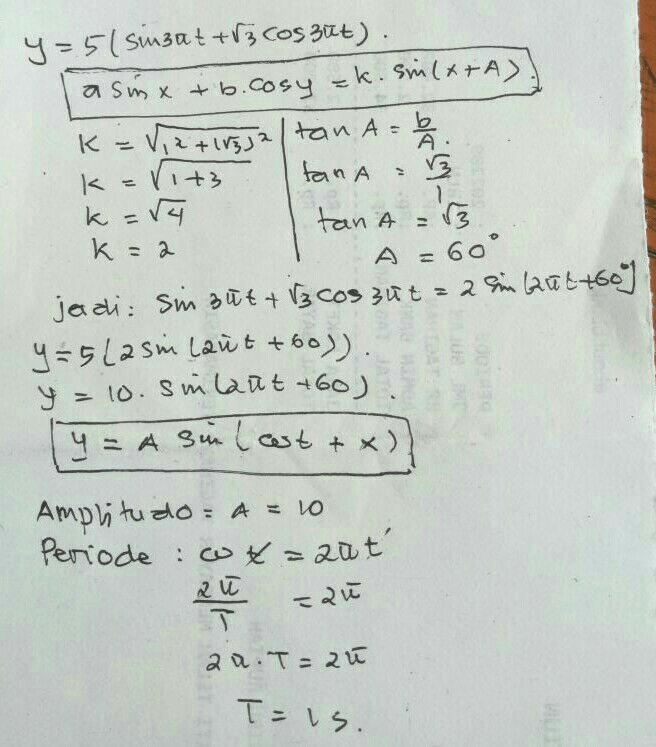 y = 5 ( sin 3πt + √3 cos 3πt ) .
a sin x + b. cos y = k. sin ( x + A ) .
K = √1² + (√3)²
K = √1+3
k = √4
k = 2
tan A = b/A.
tan A = √3/1
tan A = √3
A = 60°
jadi : sin 3πt + √3 cos 3πt = 2 sin (2πt + 60°)
y = 5 ( 2 sin ( 2πt + 60 ) ) .
y = 10 . sin ( 2πt + 60 ) .
y = A sin ( ωt + x )
Amplitudo = A = 10
Periode : ωt = 2πt
2π/T = 2π
2π . T = 2π
T = 1 s .